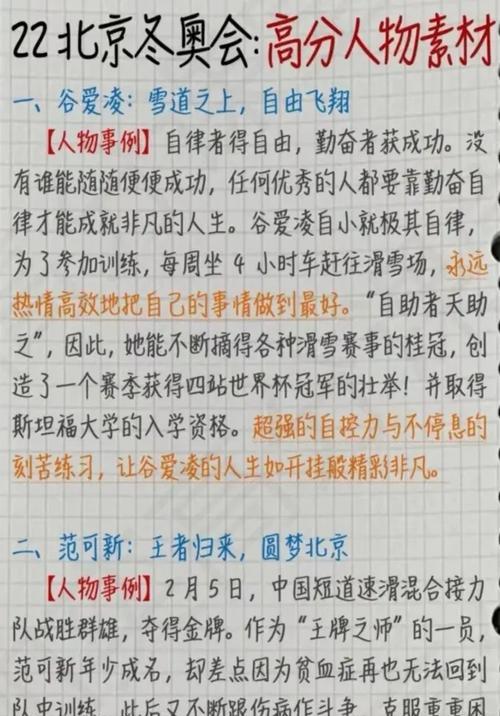 22北京冬奥会:高分人物素材
一、谷爱凌：雪道之上，自由飞翔
【人物事例】自律者得自由，勤奋者获成功。没
有谁能随随便便成功，任何优秀的人都要靠勤奋自
律才能成就非凡的人生。谷爱凌自小就极其自律，
为了参加训练，每周坐 4 小时车赶往滑雪场，永远
热情高效地把自己的事情做到最好。“自助者天助
之”，因此，她能不断摘得各种滑雪赛事的桂冠，创
造了一个赛季获得四站世界杯冠军的壮举！并取得
斯坦福大学的入学资格。超强的自控力与不停息的
刻苦练习，让谷爱凌的人生如开挂般精彩非凡。
二、范可新：王者归来，圆梦北京
【人物事例】2月5日，中国短道速滑混合接力
队战胜群雄，夺得金牌。作为“王牌之师”的一员，
范可新年少成名，却差点因为贫血症再也无法回到
队中训练，此后又不断跟伤病作斗争，克服重重困